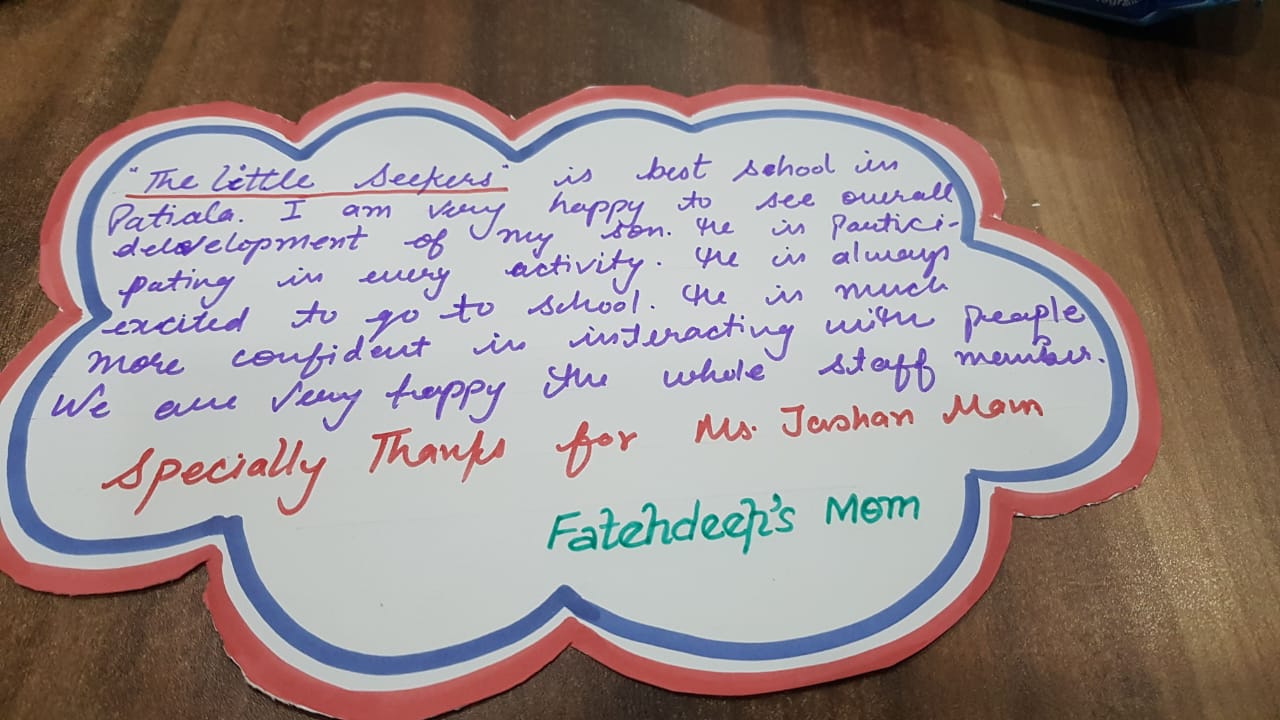 "The little Seekers" is best school in
Patiala. I am very happy to see overall
development of my son. He is Partici-
pating in every activity. He is always
excited to go to school. He is much
more confident in interacting with people
We are very happy the whole staff member.
Specially Thanks for Ms. Jashan Mam
Fatehdeep's Mom